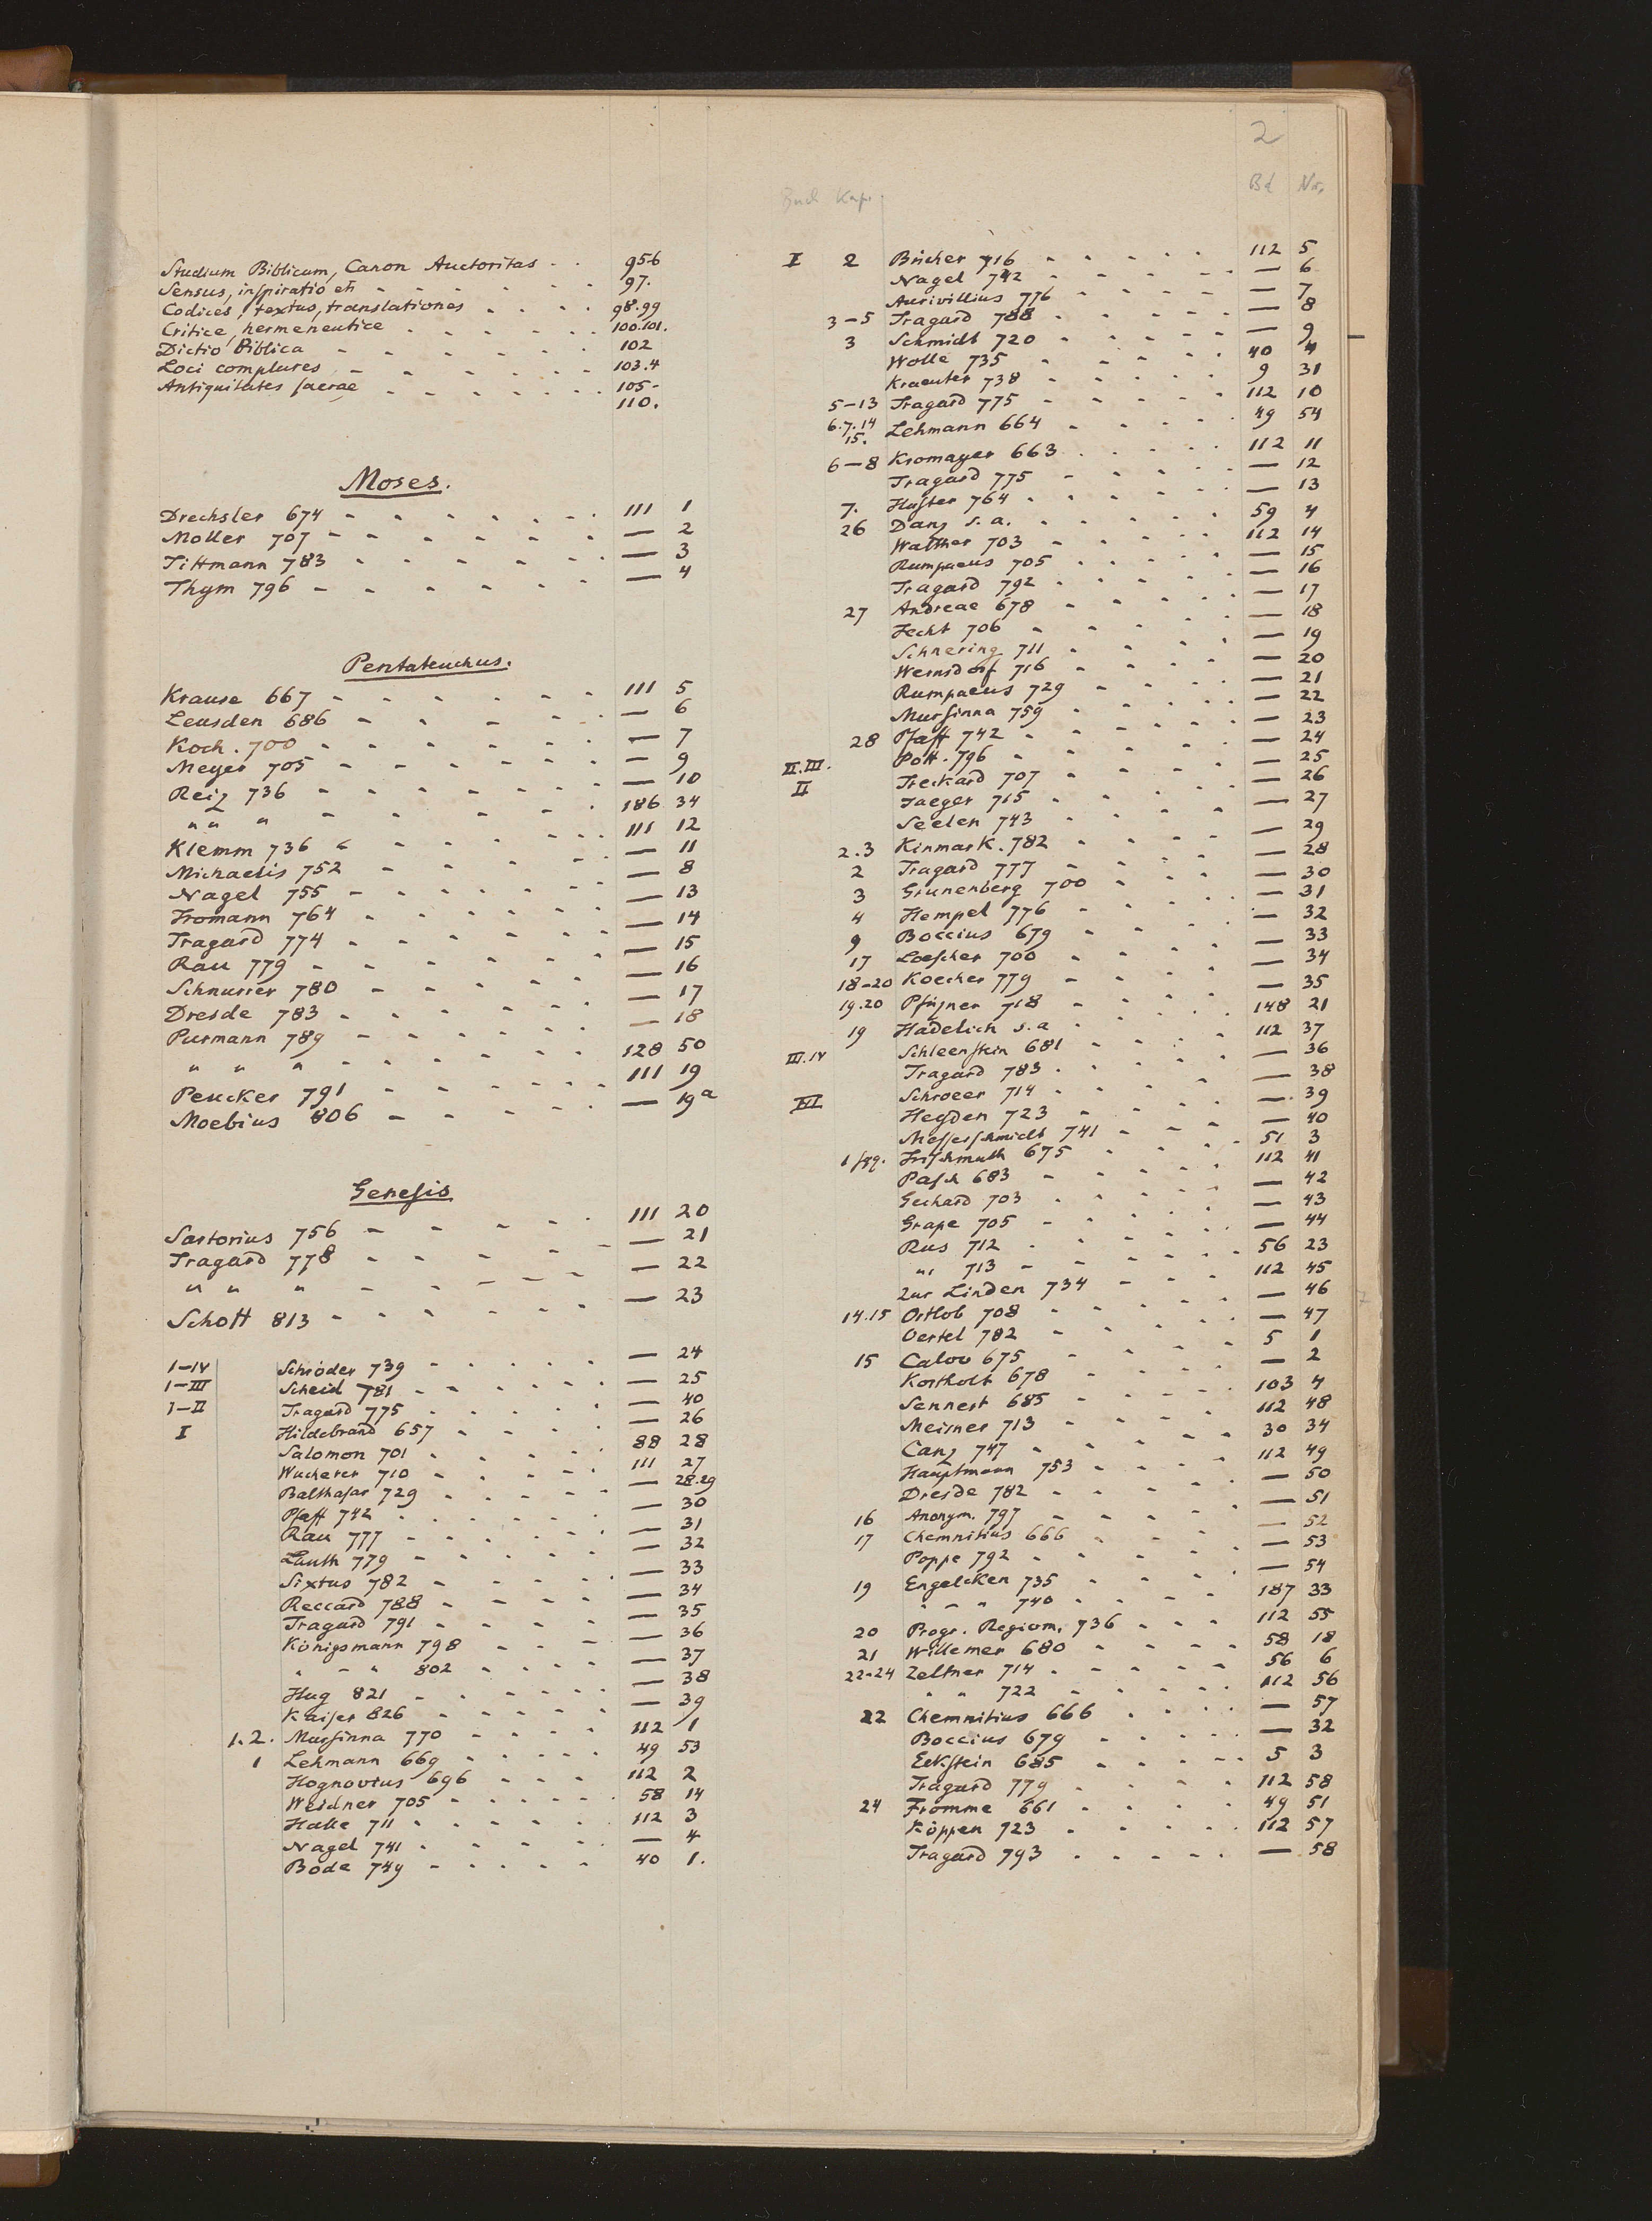 2
Buch Kap. Bd Nr.
Studium Biblicum, Canon Auctoritas 95.6
Sensus, inspiratio etc 97.
Codices, textus, translationes 98.99
Critice, hermeneutice 100.101.
Dictio Biblica 102
Loci complures 103.4
Antiquitates sacrae 105-
110.
Moses.
Drechsler 674 111 1
Moller 707 — 2
Tittmann 783 — 3
Thym 796 — 4
Pentateuchus.
Krause 667 111 5
Leusden 686 — 6
Koch. 700 — 7
Meyer 705 — 9
Reiz 736 — 10
" " " 186 34
Klemm 736 111 12
Michaelis 752 — 11
Nagel 755 — 8
Fromann 764 — 13
Tragard 774 — 14
Rau 779 — 15
Schnurrer 780 — 16
Dresde 783 — 17
Purmann 789 — 18
" " " 128 50
Peucker 791 111 19
Moebius 806 — 19a
Genesis
Sartorius 756 111 20
Tragard 778 — 21
" " " — 22
Schott 813 — 23
1-IV Schröder 739 — 24
1-III Scheid 781 — 25
1-II Tragard 775 — 40
I Hildebrand 657 — 26
Salomon 701 88 28
Wucherer 710 111 27
Balthasar 729 — 28.29
Pfaff 742 — 30
Rau 777 — 31
Lauth 779 — 32
Sixtus 782 — 33
Reccard 788 — 34
Tragard 791 — 35
Königsmann 798 — 36
" - " 802 — 37
Hug 821 — 38
Kaiser 826 — 39
1.2. Mursinna 770 112 1
1 Lehmann 669 49 53
Hognovius 696 112 2
Weidner 705 58 14
Halle 711 112 3
Nagel 741 — 4
Bode 749 40 1.
I 2 Bücher 716 112 5
Nagel 742 — 6
Aurivillius 776 — 7
3-5 Tragard 788 — 8
3 Schmidt 720 — 9
Wolle 735 40 4
Kraeuter 738 9 31
5-13 Tragard 775 112 10
6.7.14 15. Lehmann 664 49 54
6-8 Kromayer 663 112 11
Tragard 775 — 12
7. Hufter 764 — 13
26 Danz s. a. 59 4
Walther 703 112 14
Rumpaeus 705 — 15
Tragard 792 — 16
27 Andreae 678 — 17
Fecht 706 — 18
Schnering 711 — 19
Wernsdorf 716 — 20
Rumpaeus 729 — 21
Mursinna 759 — 22
28 Pfaff 742 — 23
Pott. 796 — 24
II.III. Treckard 707 — 25
II Jaeger 715 — 26
Seelen 743 — 27
2.3 Kinmark. 782 — 29
2 Tragard 777 — 28
3 Grunenberg 700 — 30
4 Hempel 776 — 31
9 Boccius 679 — 32
17 Loescher 700 — 33
18-20 Koecher 779 — 34
19.20 Pfizner 718 — 35
19 Hadelich s. a 148 21
III.IV Schleenstein 681 112 37
Tragard 783 — 36
III Schroeer 714 — 38
Heyden 723 — 39
Messerschmidt 741 — 40
1 sqq. Frischmuth 675 51 3
Pasch 683 112 41
Gerhard 703 — 42
Grape 705 — 43
Rus 712 — 44
" 713 56 23
Zur Linden 734 112 45
14.15 Ortlob 708 — 46
Oertel 782 — 47
15 Calov 675 5 1
Kortholt 678 — 2
Sennert 685 103 4
Meisner 713 112 48
Canz 747 30 34
Hauptmann 753 112 49
Dresde 782 — 50
16 Anonym. 797 — 51
17 Chemnitius 666 — 52
Poppe 792 — 53
19 Engelcken 735 — 54
" - " 740 187 33
20 Progr. Regiom. 736 112 55
21 Willemer 680 58 18
22-24 Zeltner 714 56 6
" " 722 112 56
22 Chemnitius 666 — 57
Boccius 679 — 32
Eckstein 685 5 3
Tragard 779 112 58
24 Fromme 661 49 51
Köppen 723 112 57
Tragard 793 — 58